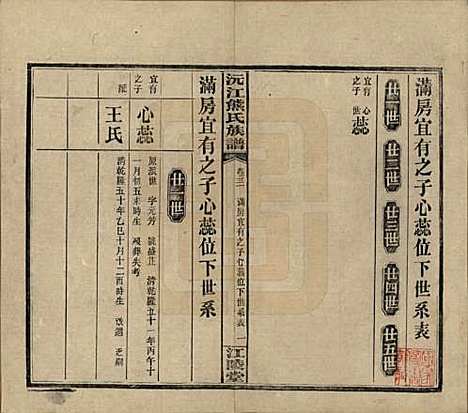 滿房宜有之子心蕊位下世系表
廿一世
廿二世
廿三世
廿四世
廿五世
宜有之子
心蕊
沅江熊氏族譜
卷三
滿房宜有之子心蕊位下世系表
一
江陵堂
滿房宜有之子心蕊位下世系
廿一世
宜有之子
心蕊
原派世 字元芳 清乾隆五十一年丙午十
一月初五未時生 殁葬失考
配
王氏
清乾隆五十年乙巳十月十二酉時生 改適 乏嗣